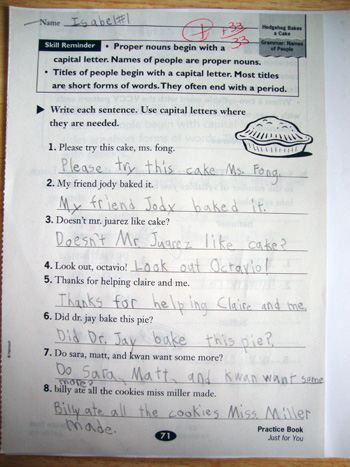 Name Isabel #1
+ +33/33
Hedgehog Bakes
a Cake
Grammar: Names
of People
Skill Reminder • Proper nouns begin with a
capital letter. Names of people are proper nouns.
• Titles of people begin with a capital letter. Most titles
are short forms of words. They often end with a period.
▶ Write each sentence. Use capital letters where
they are needed.
1. Please try this cake, ms. fong.
Please try this cake Ms. Fong.
2. My friend jody baked it.
My friend Jody baked it.
3. Doesn't mr. juarez like cake?
Doesn't Mr. Juarez like cake?
4. Look out, octavio! Look out Octavio!
5. Thanks for helping claire and me.
Thanks for helping Claire and me.
6. Did dr. jay bake this pie?
Did Dr. Jay bake this pie?
7. Do sara, matt, and kwan want some more?
Do Sara, Matt, and Kwan want some
more?
8. billy ate all the cookies miss miller made.
Billy ate all the cookies Miss. Miller
made.
71
Practice Book
Just for You